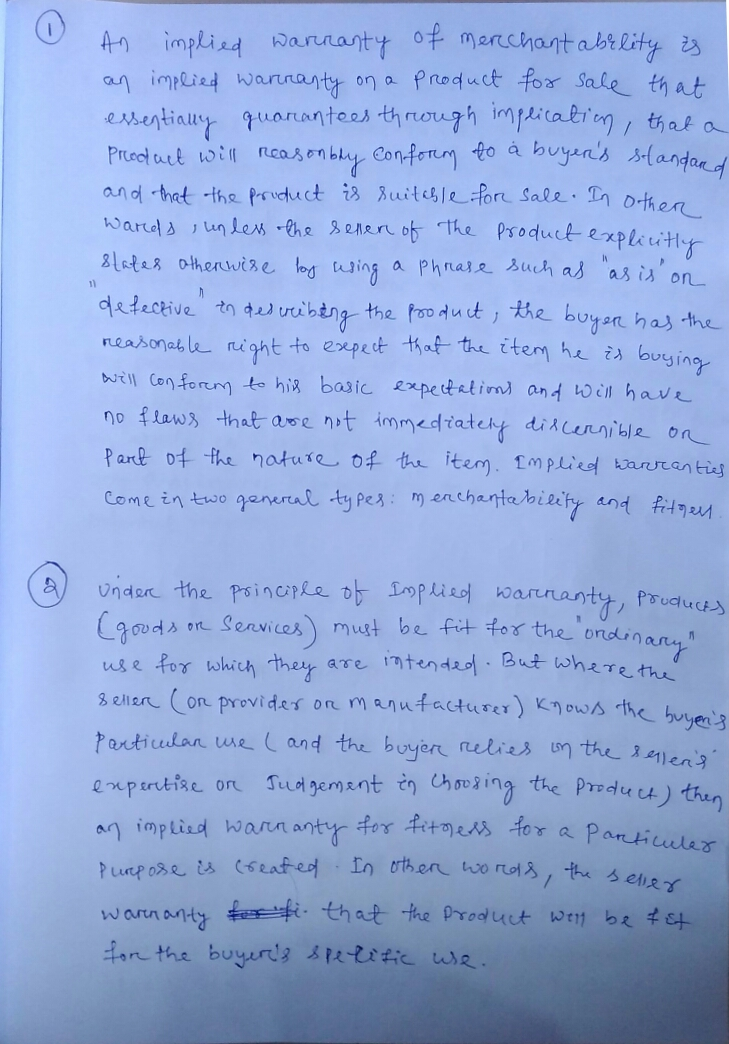 ①
An implied warranty of merchantability is
an implied warranty on a product for sale that
essentially guarantees through implication, that a
product will reasonbly conform to a buyer's standard
and that the product is suitable for sale. In other
words, unless the seller of the product explicitly
states otherwise by using a phrase such as "as is" or
"defective" in describing the product, the buyer has the
reasonable right to expect that the item he is buying
will conform to his basic expectations and will have
no flaws that are not immediately discernible or
part of the nature of the item. Implied warranties
come in two general types: merchantability and fitness.
②
Under the principle of Implied warranty, products
(goods or Services) must be fit for the "ordinary"
use for which they are intended. But where the
seller (or provider or manufacturer) knows the buyer's
particular use (and the buyer relies on the seller's
expertise or Judgement in choosing the product) then
an implied warranty for fitness for a particular
purpose is created. In other words, the seller
warranty that the product will be fit
for the buyer's specific use.